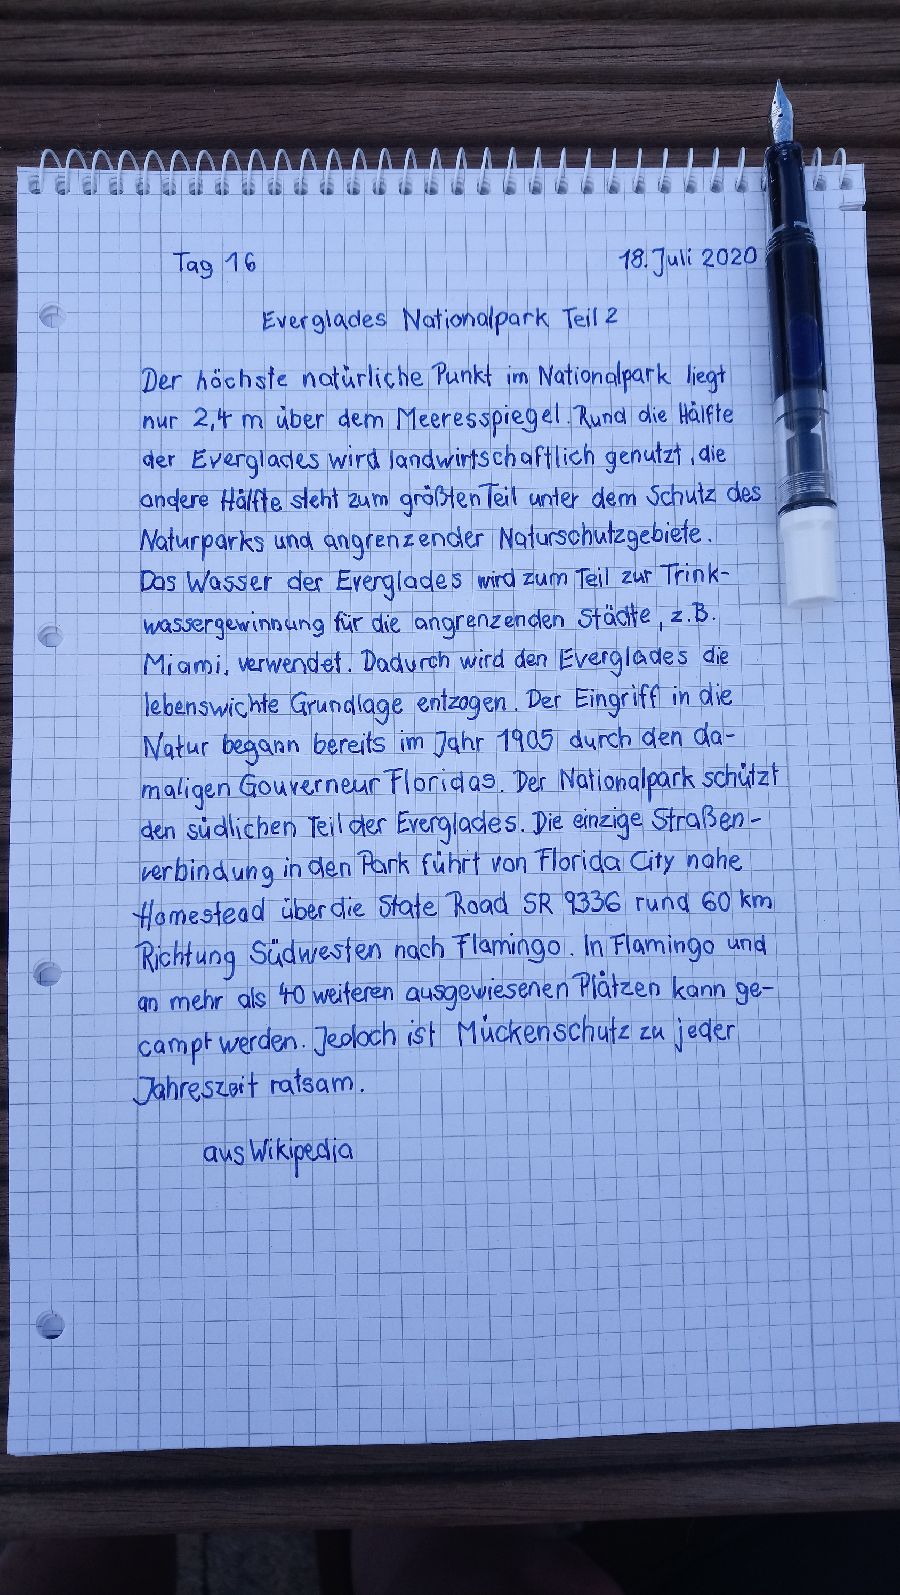 Tag 16 18. Juli 2020
Everglades Nationalpark Teil 2
Der höchste natürliche Punkt im Nationalpark liegt
nur 2,4 m über dem Meeresspiegel. Rund die Hälfte
der Everglades wird landwirtschaftlich genutzt, die
andere Hälfte steht zum größten Teil unter dem Schutz des
Naturparks und angrenzender Naturschutzgebiete.
Das Wasser der Everglades wird zum Teil zur Trink-
wassergewinnung für die angrenzenden Städte, z.B.
Miami, verwendet. Dadurch wird den Everglades die
lebenswichte Grundlage entzogen. Der Eingriff in die
Natur begann bereits im Jahr 1905 durch den da-
maligen Gouverneur Floridas. Der Nationalpark schützt
den südlichen Teil der Everglades. Die einzige Straßen-
verbindung in den Park führt von Florida City nahe
Homestead über die State Road SR 9336 rund 60 km
Richtung Südwesten nach Flamingo. In Flamingo und
an mehr als 40 weiteren ausgewiesenen Plätzen kann ge-
campt werden. Jedoch ist Mückenschutz zu jeder
Jahreszeit ratsam.
aus Wikipedia